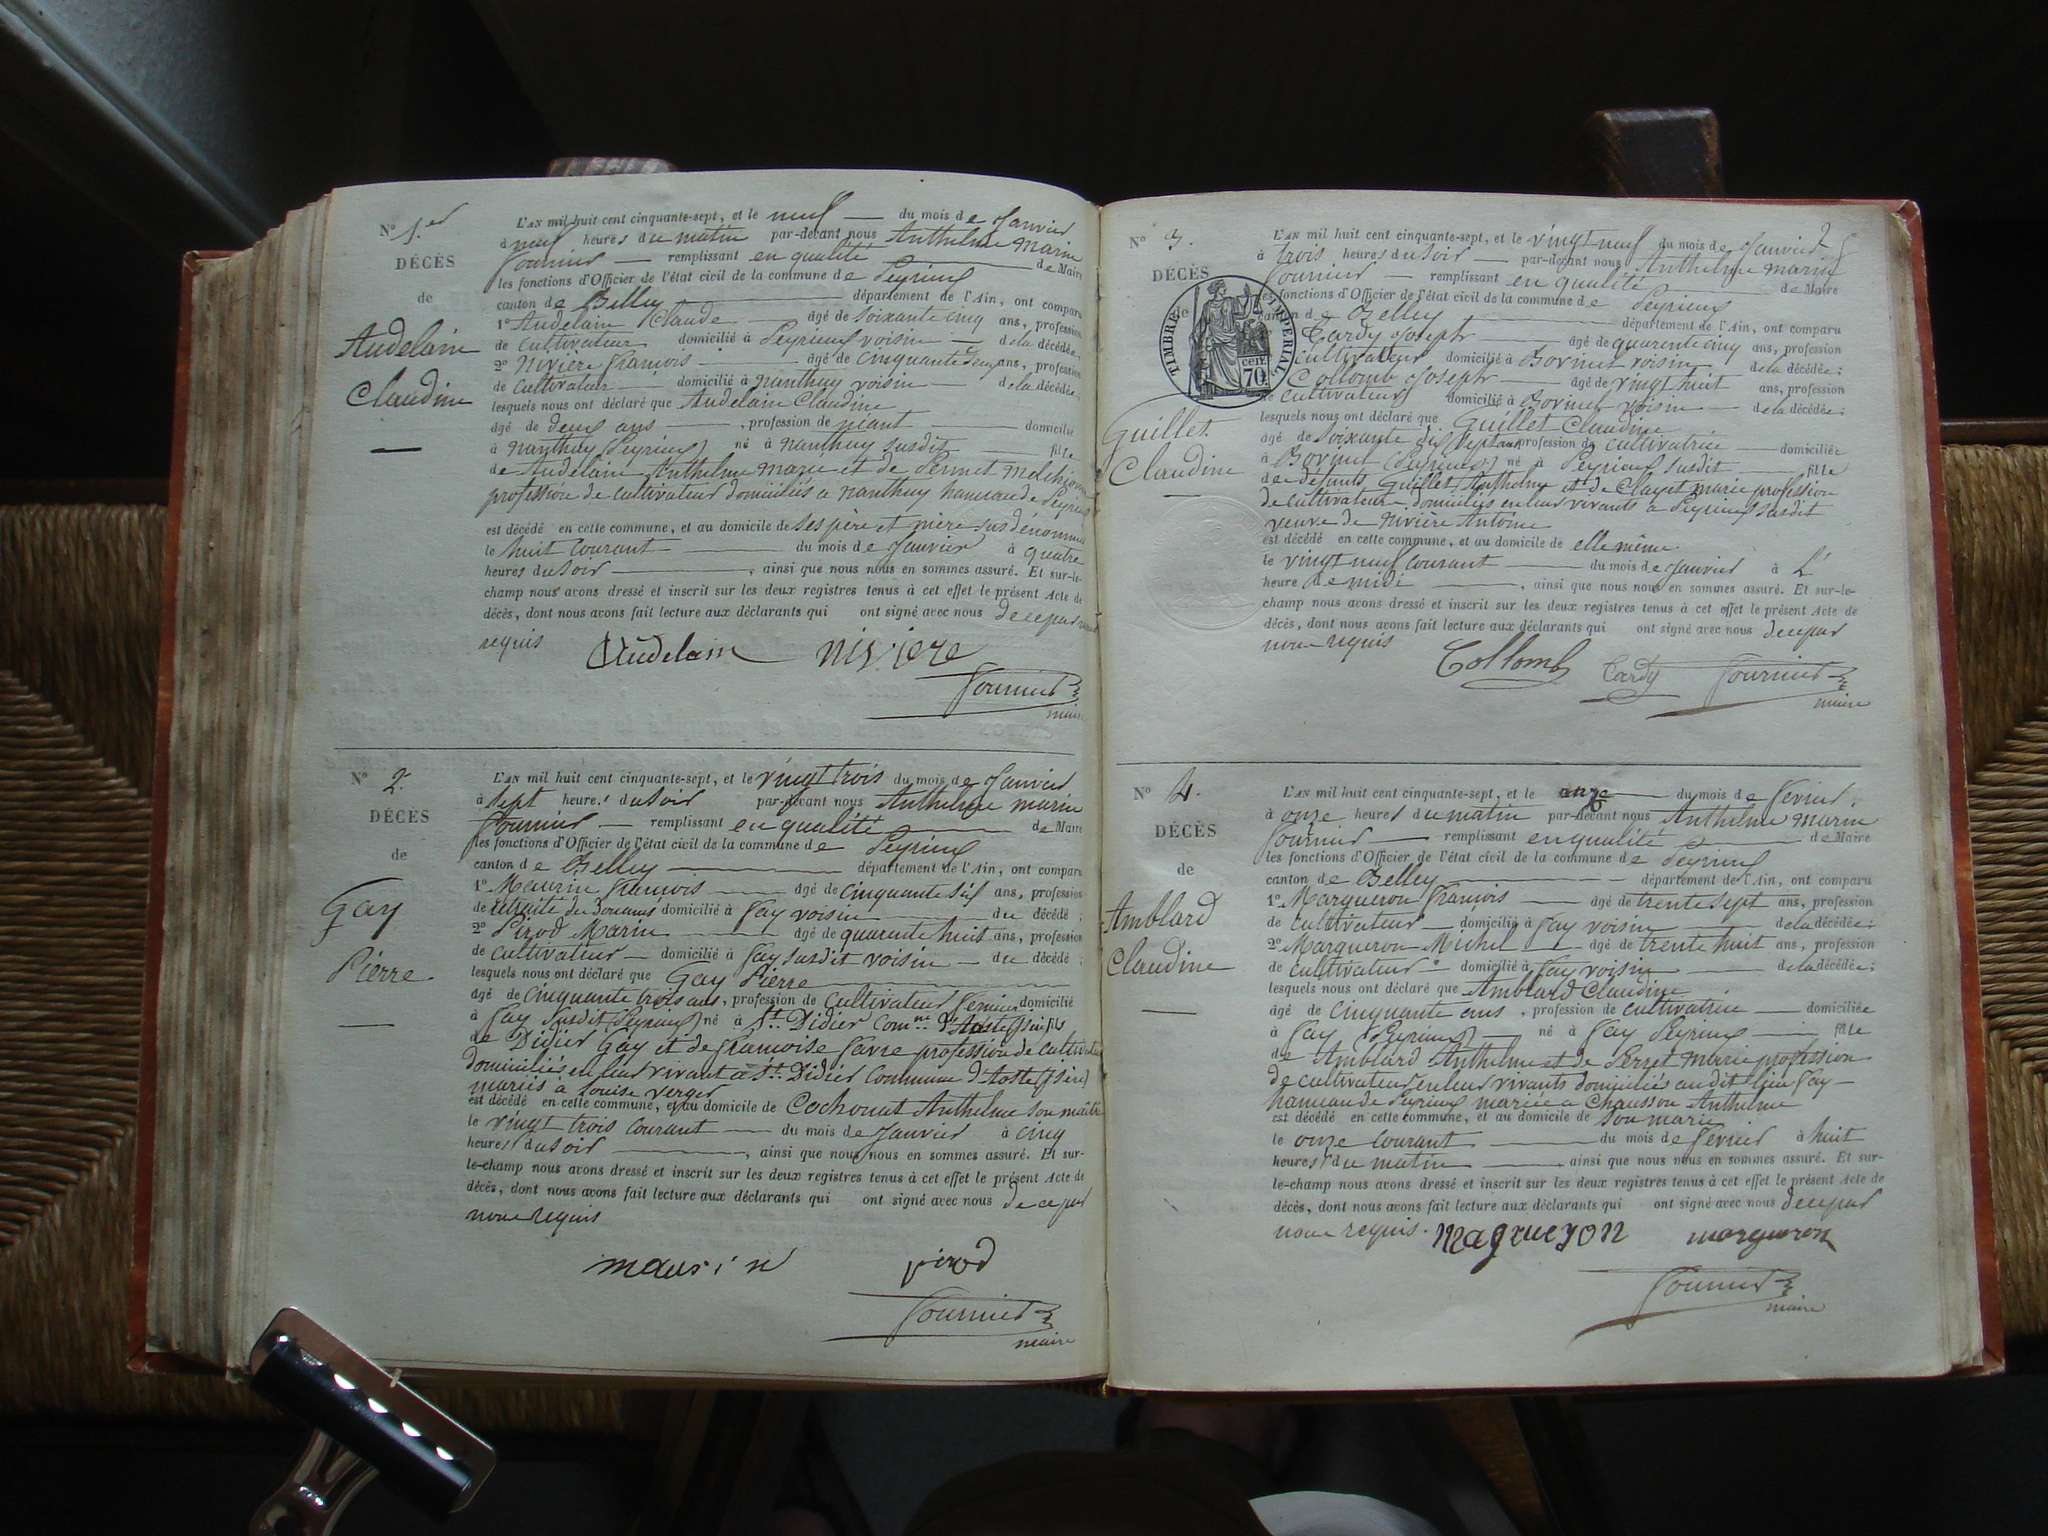 N° 1.er
DÉCÈS
de
Audelain
Claudine
L'AN mil huit cent cinquante-sept, et le neuf du mois de Janvier
à neuf heures du matin par-devant nous Anthelme Marin
Fournier remplissant en qualité de Maire
les fonctions d'Officier de l'état civil de la commune de Peyrieux
canton de Belley département de l'Ain, ont comparu
1° Audelain Claude âgé de soixante cinq ans, profession
de cultivateur domicilié à Peyrieux voisin de la décédée;
2° Nivière François âgé de cinquante deux ans, profession
de cultivateur domicilié à Nanthuy voisin de la décédée;
lesquels nous ont déclaré que Audelain Claudine
âgé de deux ans, profession de néant domicilié
à Nanthuy (Peyrieux) né à Nanthuy susdit fille
de Audelain Anthelme Marie et de Pernet
profession de cultivateur domiciliés à Nanthuy hameau de Peyrieux
est décédé en cette commune, et au domicile de ses père et mère susdénommés
le huit courant du mois de Janvier à quatre
heures du soir, ainsi que nous nous en sommes assuré. Et sur-le-
champ nous avons dressé et inscrit sur les deux registres tenus à cet effet le présent Acte de
décès, dont nous avons fait lecture aux déclarants qui ont signé avec nous de ce par nous
requis
Audelain nivière
Fournier
maire
N° 2.
DÉCÈS
de
Gay
Pierre
L'AN mil huit cent cinquante-sept, et le vingt trois du mois de Janvier
à sept heures du soir par-devant nous Anthelme Marin
Fournier remplissant en qualité de Maire
les fonctions d'Officier de l'état civil de la commune de Peyrieux
canton de Belley département de l'Ain, ont comparu
1° Maurin François âgé de cinquante six ans, profession
de retraité des Douanes domicilié à Fay voisin du décédé;
2° Pirod Marin âgé de quarente huit ans, profession
de cultivateur domicilié à Fay susdit voisin du décédé;
lesquels nous ont déclaré que Gay Pierre
âgé de cinquante trois ans, profession de cultivateur fermier domicilié
à Fay susdit (Peyrieux) né à St. Didier Com.ne d'Aoste (Isère) fils
de Didier Gay et de Françoise Favre profession de cultivateur
domiciliés en leur vivant à St. Didier Commune d'Aoste (Isère)
mariés à Louise Verger
est décédé en cette commune, et au domicile de Cochonat Anthelme son maître
le vingt trois courant du mois de Janvier à cinq
heures du soir, ainsi que nous nous en sommes assuré. Et sur-
le-champ nous avons dressé et inscrit sur les deux registres tenus à cet effet le présent Acte de
décès, dont nous avons fait lecture aux déclarants qui ont signé avec nous de ce par
nous requis
maurin pirod
Fournier
maire
N° 3.
DÉCÈS
de
TIMBRE IMPERIAL
70 cen.
Guillet
Claudine
L'AN mil huit cent cinquante-sept, et le vingt neuf du mois de Janvier
à trois heures du soir par-devant nous Anthelme Marin
Fournier remplissant en qualité de Maire
les fonctions d'Officier de l'état civil de la commune de Peyrieux
canton de Belley département de l'Ain, ont comparu
Tardy Joseph âgé de quarente cinq ans, profession
cultivateur domicilié à Bovinel voisin de la décédée;
Collomb Joseph âgé de vingt huit ans, profession
de cultivateur domicilié à Bovinel voisin de la décédée;
lesquels nous ont déclaré que Guillet Claudine
âgé de soixante dix sept ans profession de cultivatrice domiciliée
à Bovinel (Peyrieux) né à Peyrieux susdit fille
de défunts Guillet Anthelme et de Clayet Marie profession
de cultivateur domiciliés en leur vivants à Peyrieux susdit
veuve de Nivière Antoine
est décédé en cette commune, et au domicile de elle même
le vingt neuf courant du mois de Janvier à L'
heure de midi, ainsi que nous nous en sommes assuré. Et sur-le-
champ nous avons dressé et inscrit sur les deux registres tenus à cet effet le présent Acte de
décès, dont nous avons fait lecture aux déclarants qui ont signé avec nous de ce par
nous requis
Collomb Tardy Fournier
maire
N° 4.
DÉCÈS
de
Amblard
Claudine
L'AN mil huit cent cinquante-sept, et le onze du mois de février
à onze heures du matin par-devant nous Anthelme Marin
Fournier remplissant en qualité de Maire
les fonctions d'Officier de l'état civil de la commune de Peyrieux
canton de Belley département de l'Ain, ont comparu
1° Margueron François âgé de trente sept ans, profession
de cultivateur domicilié à Fay voisin de la décédée;
2° Margueron Michel âgé de trente huit ans, profession
de cultivateur domicilié à Fay voisin de la décédée;
lesquels nous ont déclaré que Amblard Claudine
âgé de cinquante ans, profession de cultivatrice domiciliée
à Fay (Peyrieux) né à Fay Peyrieux fille
de Amblard Anthelme et de Perret Marie profession
de cultivateur en leur vivants domiciliés audit lieu Fay
hameau de Peyrieux mariée à Chausson Anthelme
est décédé en cette commune, et au domicile de son mari
le onze courant du mois de février à huit
heures du matin, ainsi que nous nous en sommes assuré. Et sur-
le-champ nous avons dressé et inscrit sur les deux registres tenus à cet effet le présent Acte de
décès, dont nous avons fait lecture aux déclarants qui ont signé avec nous de ce par
nous requis. magrueron margueron
Fournier
maire